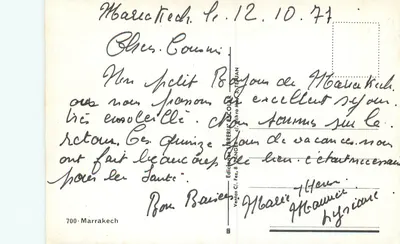 Marrakech le 12.10.77
Chers Cousins
Un petit Bonjour de Marrakech
ou nous passons un excellent séjour
très ensoleillé. Nous sommes sur le
retour. Ces quinze jours de vacances nous
ont fait beaucoup de bien c'était nécessaire
pour la Santé.
Bons Baisers Marie Henri
Maurice
Lysiane
700 - Marrakech